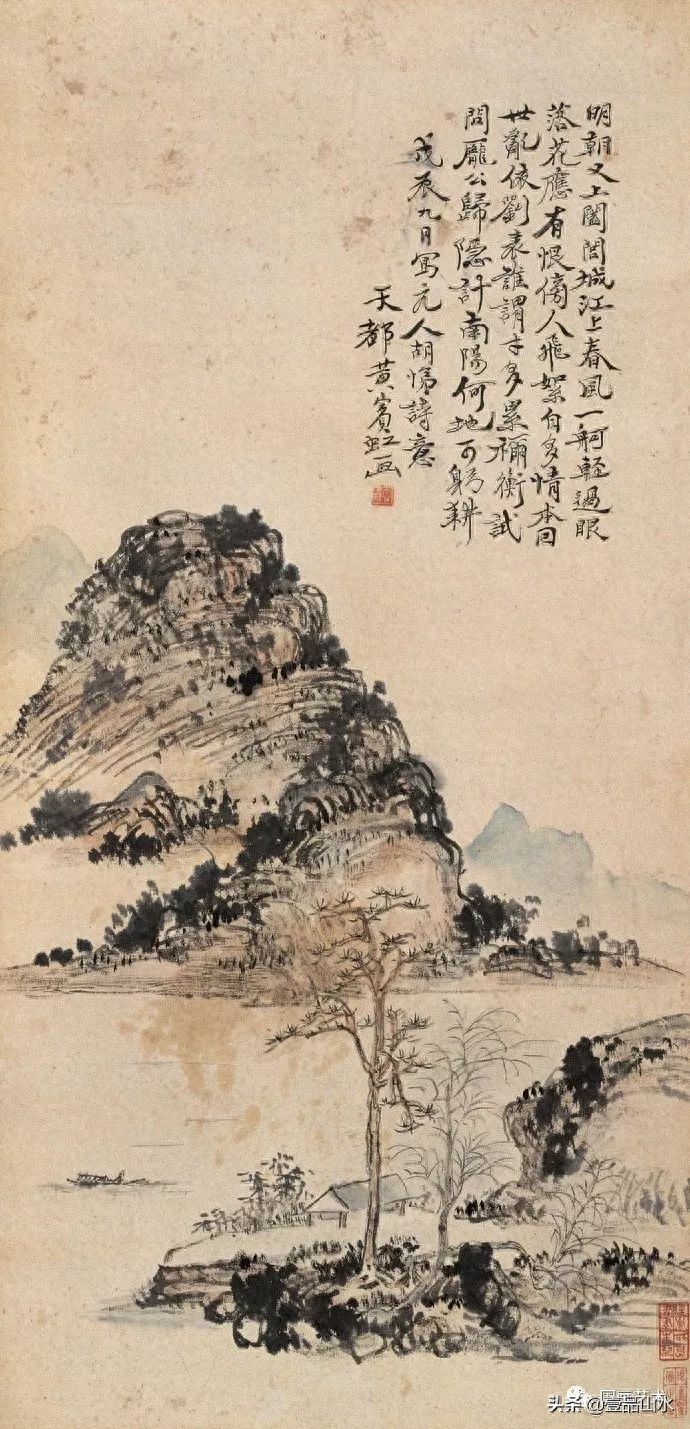 明朝又上闔閭城江上春風一舸輕過眼
落花應有恨傍人飛絮自多情本因
世亂依劉表誰謂才多累禰衡試
問龐公歸隱計南陽何地可躬耕
戊辰九月寫元人胡詩意
天都黃賓虹画
国画艺术
头条@壹品山水